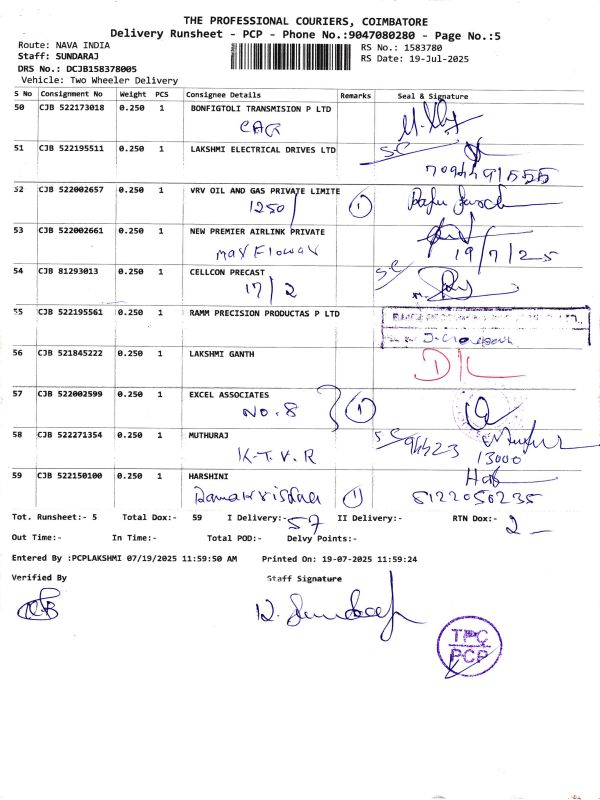 THE PROFESSIONAL COURIERS, COIMBATORE
Delivery Runsheet - PCP - Phone No.:9047080280 - Page No.:5
Route: NAVA INDIA
RS No.: 1583780
Staff: SUNDARAJ
RS Date: 19-Jul-2025
DRS No.: DCJB158378005
Vehicle: Two Wheeler Delivery
S No Consignment No Weight PCS Consignee Details Remarks Seal & Signature
50 CJB 522173018 0.250 1 BONFIGTOLI TRANSMISION P LTD
51 CJB 522195511 0.250 1 LAKSHMI ELECTRICAL DRIVES LTD S.C
52 CJB 522002657 0.250 1 VRV OIL AND GAS PRIVATE LIMITE
1250/ 1
53 CJB 522002661 0.250 1 NEW PREMIER AIRLINK PRIVATE
19/7/25
54 CJB 81293013 0.250 1 CELLCON PRECAST S/C
17/2
55 CJB 522195561 0.250 1 RAMM PRECISION PRODUCTAS P LTD
56 CJB 521845222 0.250 1 LAKSHMI GANTH D/L
57 CJB 522002599 0.250 1 EXCEL ASSOCIATES
NO. 8 1
58 CJB 522271354 0.250 1 MUTHURAJ
K.T.V.R 13000
59 CJB 522150100 0.250 1 HARSHINI
1 6122056235
Tot. Runsheet:- 5 Total Dox:- 59 I Delivery:- 57 II Delivery:- RTN Dox:- 2
Out Time:- In Time:- Total POD:- Delvy Points:-
Entered By :PCPLAKSHMI 07/19/2025 11:59:50 AM Printed On: 19-07-2025 11:59:24
Verified By Staff Signature
TPC
PCP